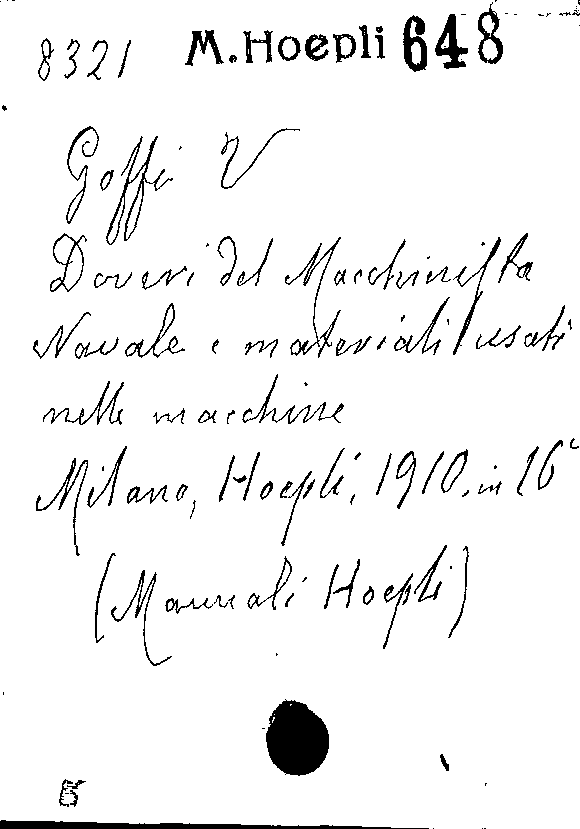 8321 M.Hoepli 648
Goffi V
Doveri del Macchinista
Navale e materiali usati
nelle macchine
Milano, Hoepli, 1910, in 16°
(Manuali Hoepli)